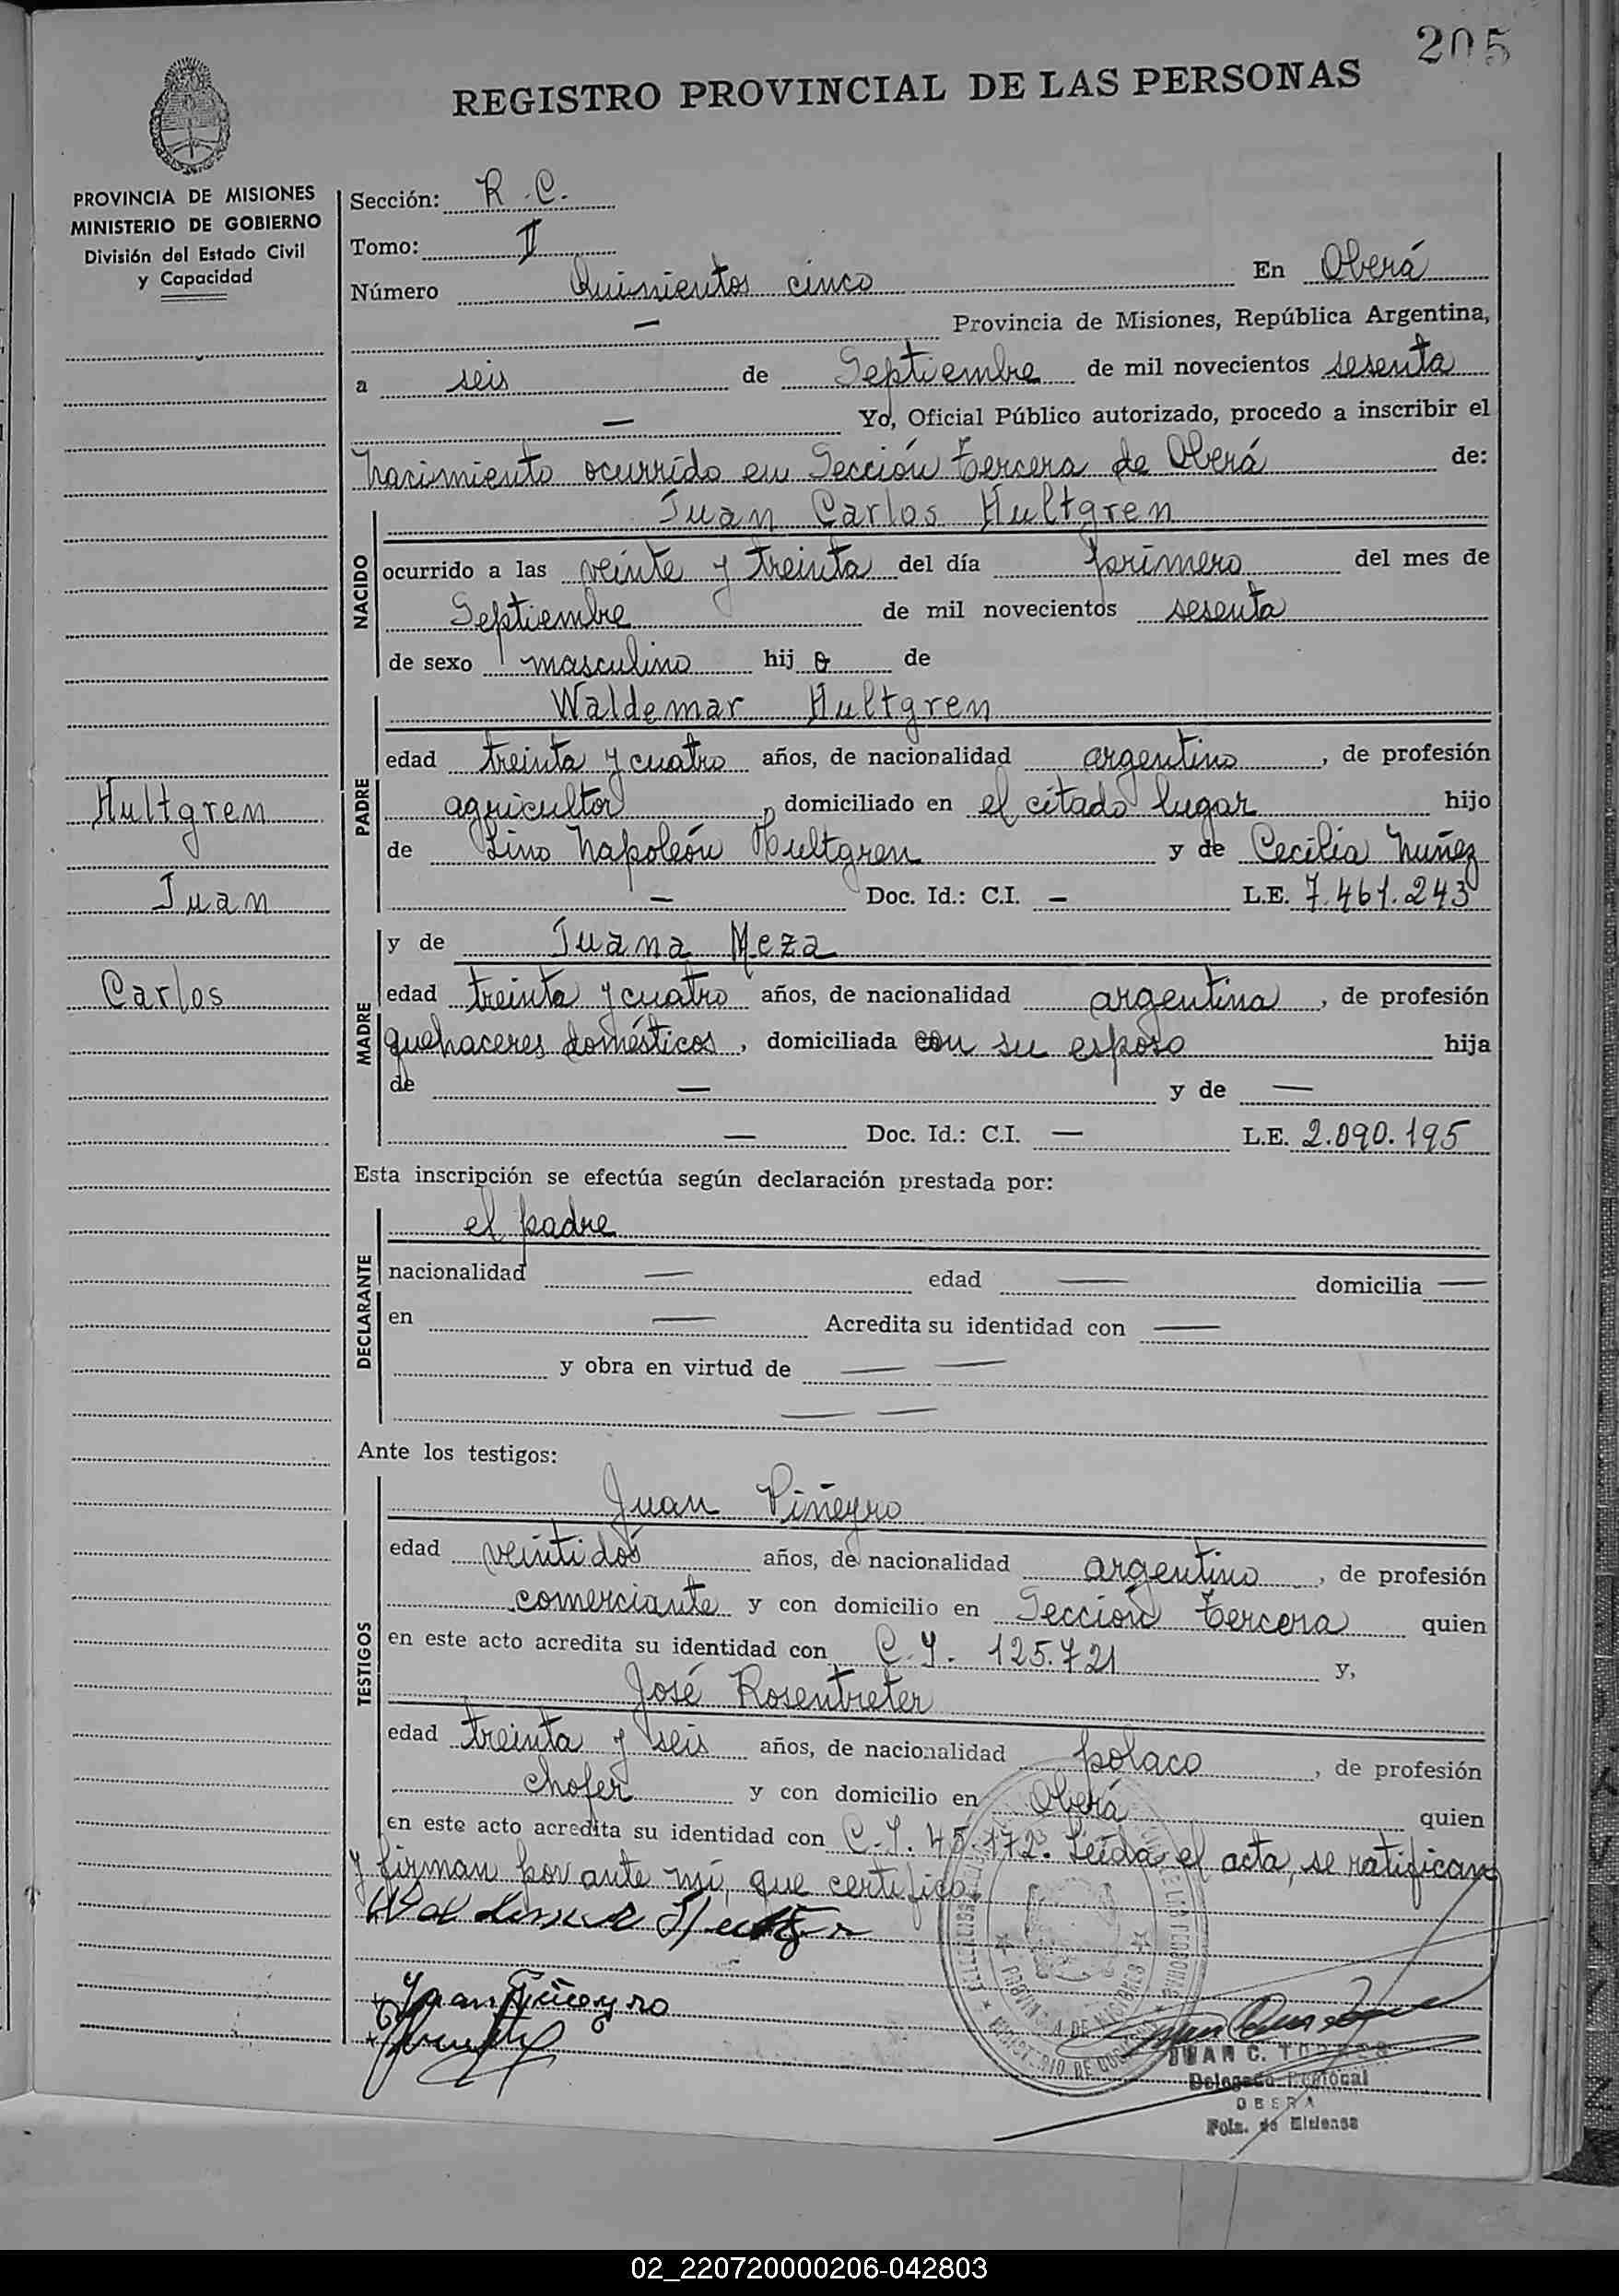 205
REGISTRO PROVINCIAL DE LAS PERSONAS
PROVINCIA DE MISIONES
MINISTERIO DE GOBIERNO
División del Estado Civil
y Capacidad
Sección: R.C.
Tomo: II
Número Quinientos cinco En Oberá
— Provincia de Misiones, República Argentina,
a seis de Septiembre de mil novecientos sesenta
— Yo, Oficial Público autorizado, procedo a inscribir el
Nacimiento ocurrido en Sección tercera de Oberá de:
Juan Carlos Hultgren
NACIDO
ocurrido a las veinte y treinta del día primero del mes de
Septiembre de mil novecientos sesenta
de sexo masculino hijo de
Waldemar Hultgren
PADRE
edad treinta y cuatro años, de nacionalidad argentino, de profesión
agricultor, domiciliado en el citado lugar hijo
de Lino Napoleón Hultgren y de Cecilia Nuñez
— Doc. Id.: C.I. — L.E. 7.461.243
Hultgren
Juan
Carlos
y de Juana Meza
MADRE
edad treinta y cuatro años, de nacionalidad argentina, de profesión
quehaceres domésticos, domiciliada con su esposo hija
de — y de —
— Doc. Id.: C.I. — L.E. 2.090.195
Esta inscripción se efectúa según declaración prestada por:
el padre
DECLARANTE
nacionalidad — edad — domicilia —
en — Acredita su identidad con —
y obra en virtud de — —
— —
Ante los testigos:
Juan Piñeyro
TESTIGOS
edad veintidós años, de nacionalidad argentino, de profesión
comerciante y con domicilio en Sección tercera quien
en este acto acredita su identidad con C.I. 125.721 y,
José Rosentreter
edad treinta y seis años, de nacionalidad polaco, de profesión
chofer y con domicilio en Oberá quien
en este acto acredita su identidad con C.I. 45.172. Leída el acta, se ratifican
y firman por ante mí, que certifico.
Juan Piñeyro
PROVINCIA DE MISIONES
JUAN C. TORRES
Delegado Regional
OBERA
Pcia. de Misiones
02_220720000206-042803